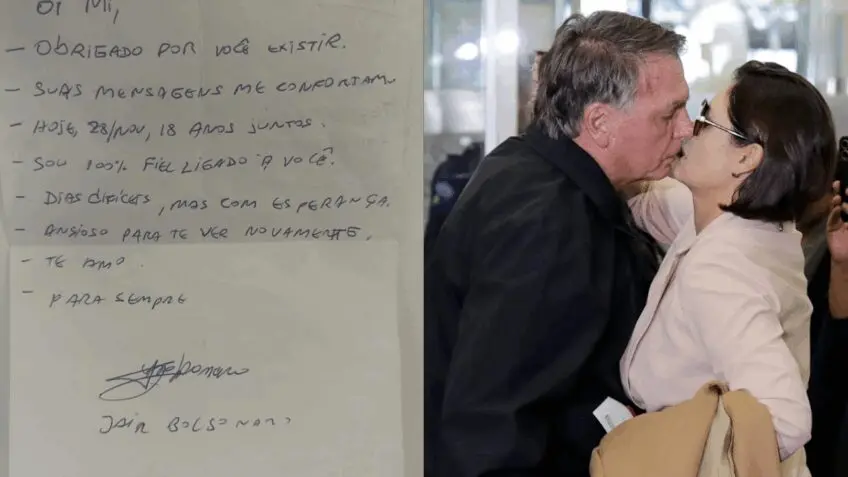 Oi Mi,
- OBRIGADO POR VOCÊ EXISTIR.
- SUAS MENSAGENS ME CONFORTAM
- HOJE, 28/NOV, 18 ANOS JUNTOS.
- SOU 100% FIEL LIGADO A VOCÊ.
- DIAS DIFÍCEIS, MAS COM ESPERANÇA.
- ANSIOSO PARA TE VER NOVAMENTE.
- TE AMO.
- PARA SEMPRE
JAIR BOLSONARO